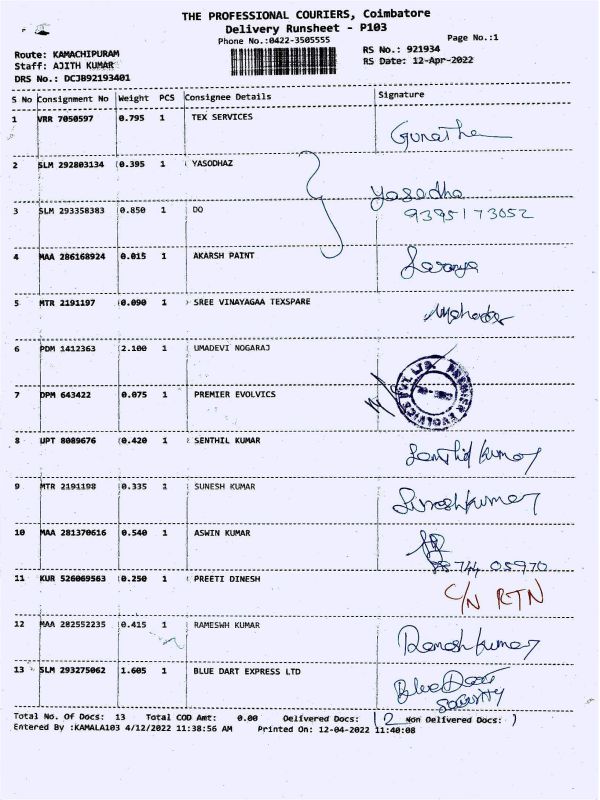 THE PROFESSIONAL COURIERS, Coimbatore
Delivery Runsheet - P103
Phone No.:0422-3505555
Page No.:1
Route: KAMACHIPURAM
Staff: AJITH KUMAR
DRS No.: DCJB92193401
RS No.: 921934
RS Date: 12-Apr-2022
S No Consignment No Weight PCS Consignee Details Signature
1 VRR 7050597 0.795 1 TEX SERVICES Gunatha
2 SLM 292803134 0.395 1 YASODHAZ Yasodha
3 SLM 293358383 0.850 1 DO 9395173052
4 MAA 286168924 0.015 1 AKARSH PAINT Saranya
5 MTR 2191197 0.090 1 SREE VINAYAGAA TEXSPARE
6 PDM 1412363 2.100 1 UMADEVI NOGARAJ
7 DPM 643422 0.075 1 PREMIER EVOLVICS PREMIER EVOLVICS PVT. LTD.
8 UPT 8089676 0.420 1 SENTHIL KUMAR Senthil kumar
9 MTR 2191198 0.335 1 SUNESH KUMAR Sureshkumar
10 MAA 281370616 0.540 1 ASWIN KUMAR 98744 05970
11 KUR 526069563 0.250 1 PREETI DINESH C/N RTN
12 MAA 282552235 0.415 1 RAMESWH KUMAR Ramesh kumar
13 SLM 293275062 1.605 1 BLUE DART EXPRESS LTD Blue Dart
Security
Total No. Of Docs: 13 Total COD Amt: 0.00 Delivered Docs: 12 Non Delivered Docs: 1
Entered By :KAMALA103 4/12/2022 11:38:56 AM Printed On: 12-04-2022 11:40:08